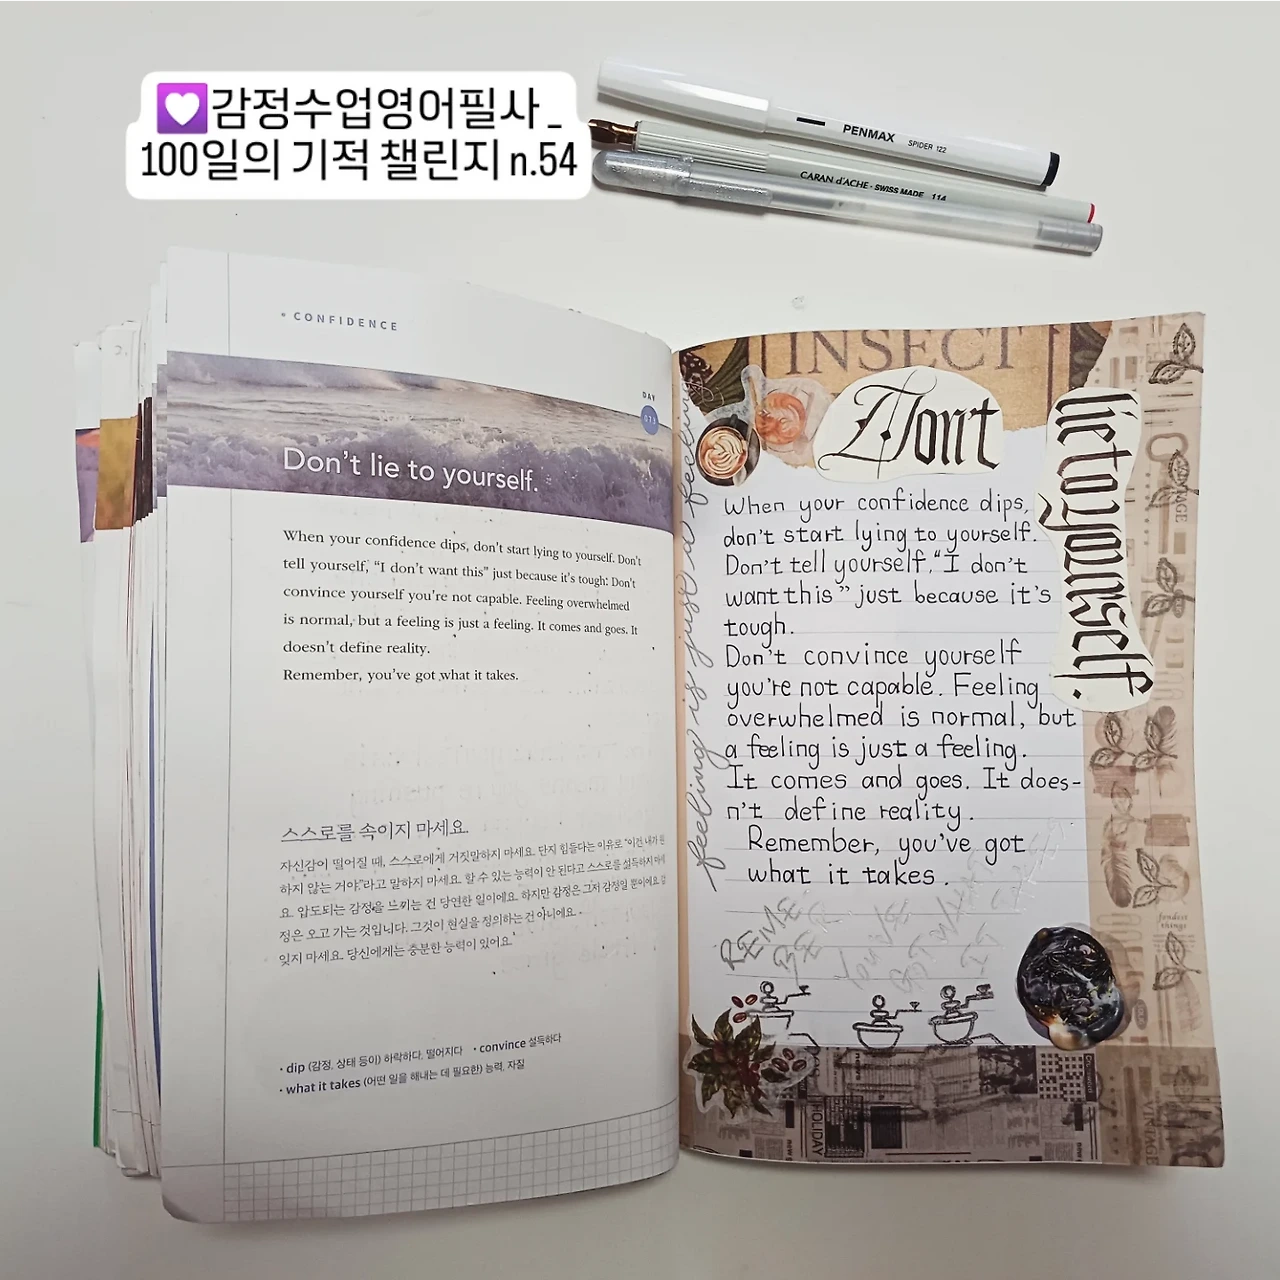 💟감정수업영어필사_
100일의 기적 챌린지 n.54
PENMAX SPIDER 122
CARAN d'ACHE · SWISS MADE 114
• CONFIDENCE
DAY
073
Don't lie to yourself.
When your confidence dips, don't start lying to yourself. Don't
tell yourself, "I don't want this" just because it's tough. Don't
convince yourself you're not capable. Feeling overwhelmed
is normal, but a feeling is just a feeling. It comes and goes. It
doesn't define reality.
Remember, you've got what it takes.
스스로를 속이지 마세요.
자신감이 떨어질 때, 스스로에게 거짓말하지 마세요. 단지 힘들다는 이유로 "이건 내가 원
하지 않는 거야."라고 말하지 마세요. 할 수 있는 능력이 안 된다고 스스로를 설득하지 마세
요. 압도되는 감정을 느끼는 건 당연한 일이에요. 하지만 감정은 그저 감정일 뿐이에요. 감
정은 오고 가는 것입니다. 그것이 현실을 정의하는 건 아니에요.
잊지 마세요. 당신에게는 충분한 능력이 있어요.
• dip (감정, 상태 등이) 하락하다, 떨어지다 • convince 설득하다
• what it takes (어떤 일을 해내는 데 필요한) 능력, 자질
INSECT
Don't
lie to yourself.
feeling is just a feeling
When your confidence dips,
don't start lying to yourself.
Don't tell yourself, "I don't
want this" just because it's
tough.
Don't convince yourself
you're not capable. Feeling
overwhelmed is normal, but
a feeling is just a feeling.
It comes and goes. It does-
n't define reality.
Remember, you've got
what it takes.
VINTAGE
fondest
things
HOLIDAY
VINTAGE